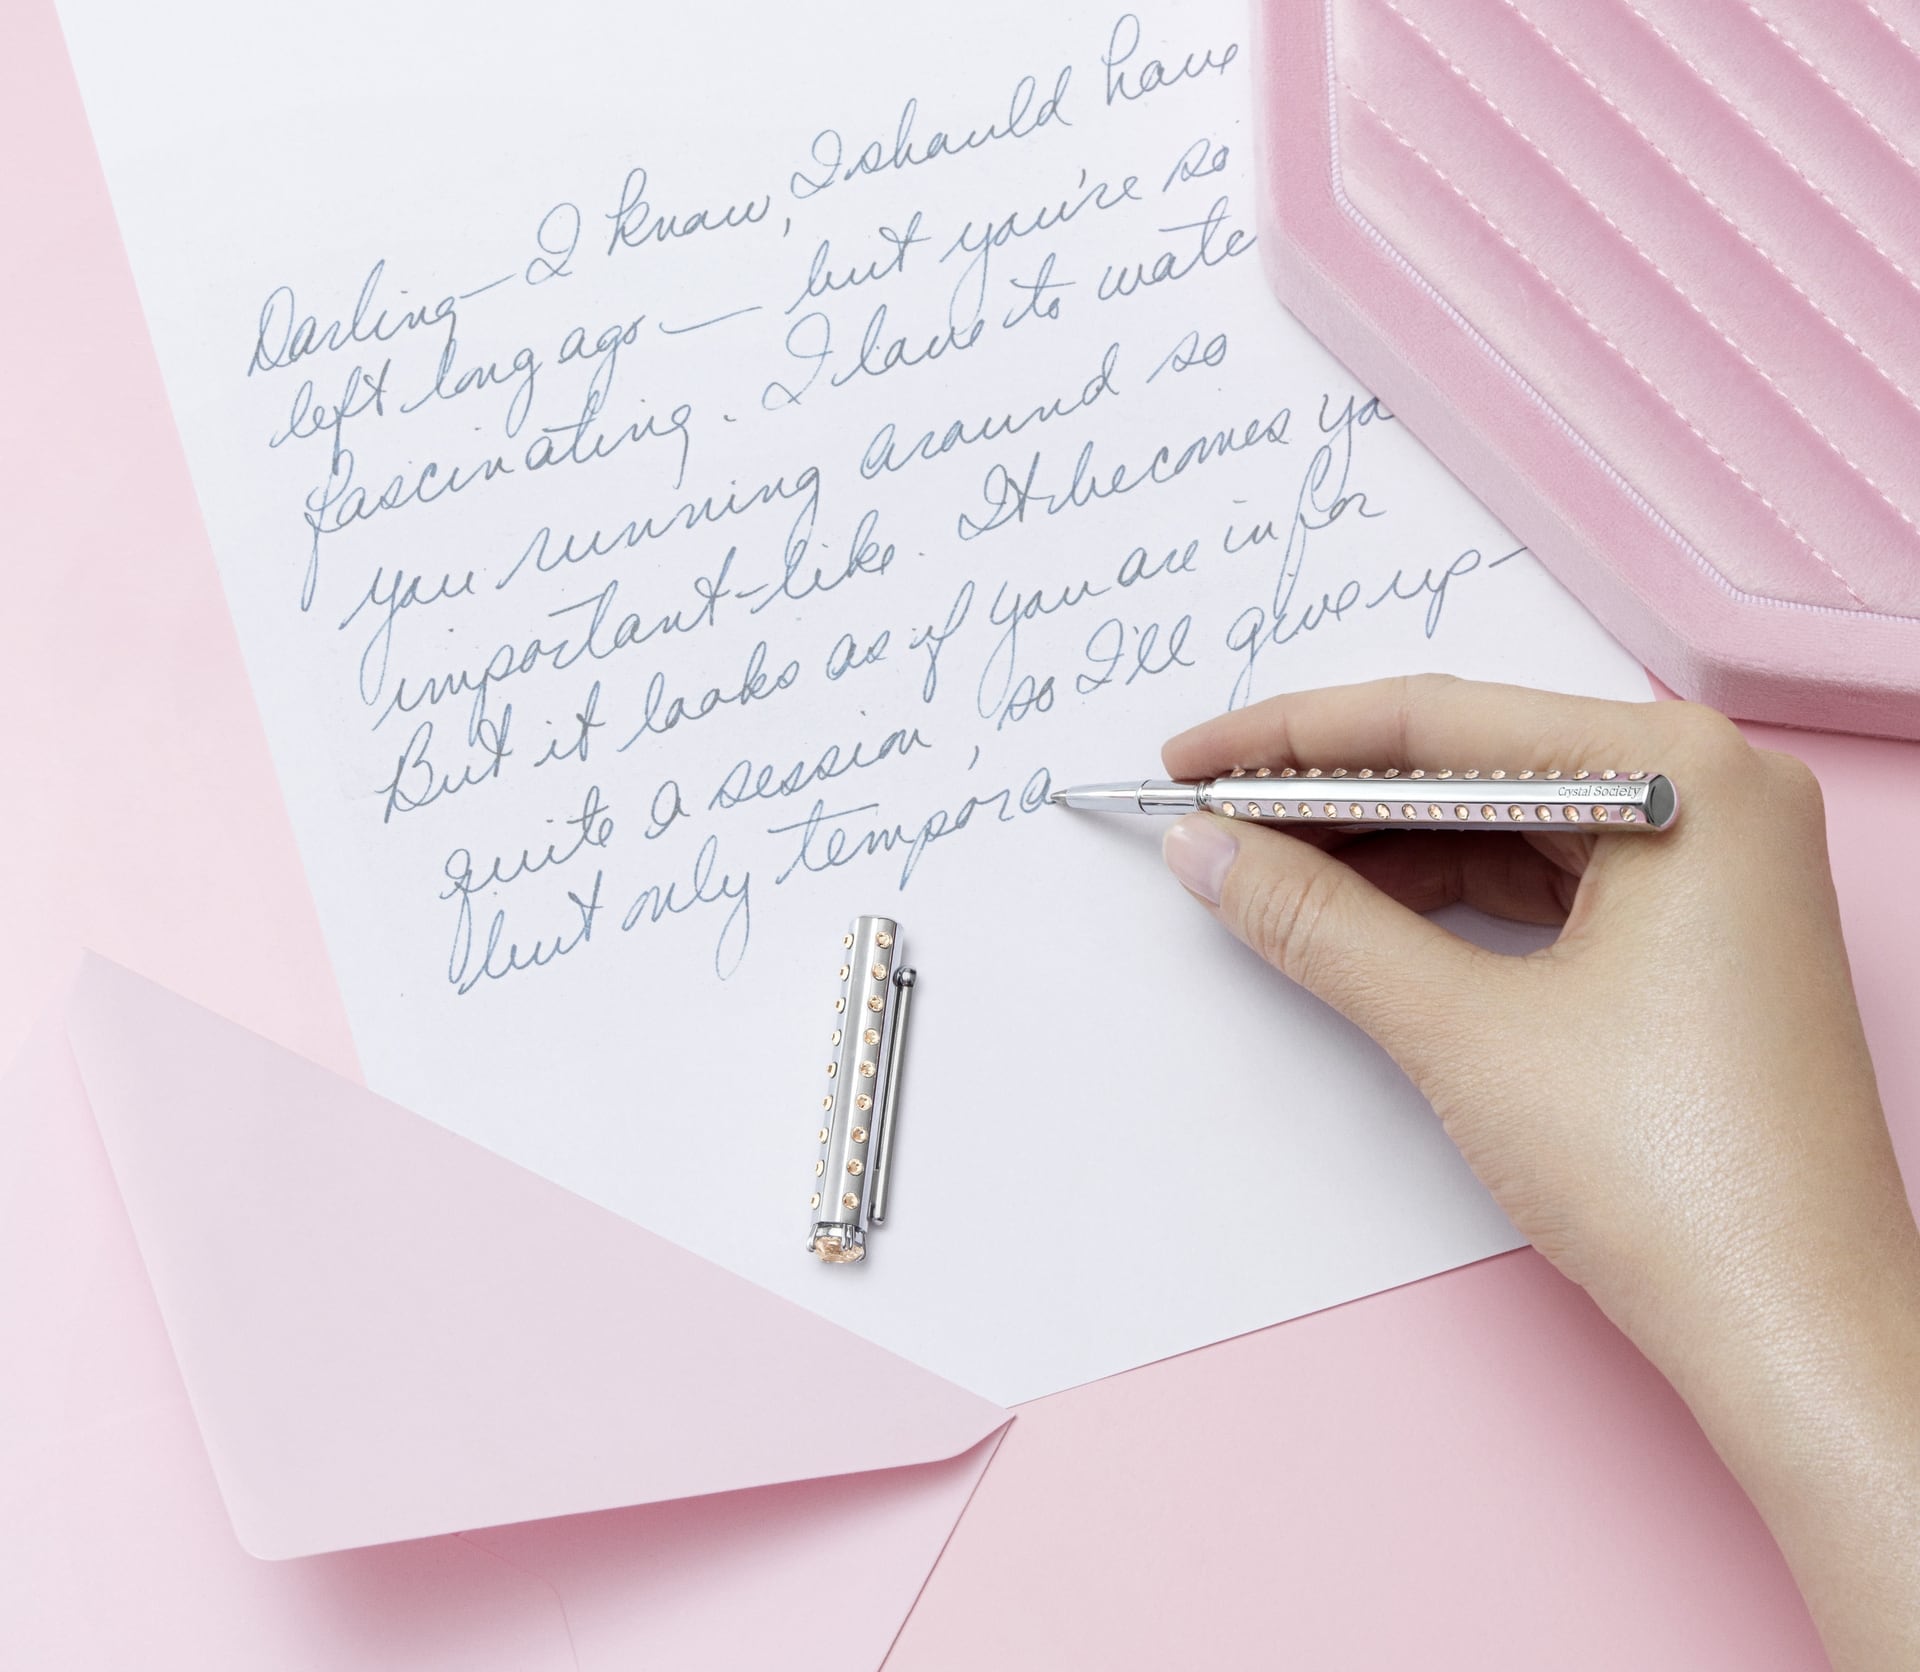 Darling — I know, I should have
left long ago — but you're so
fascinating. I love to watc
you running around so
important-like. It becomes yo
But it looks as if you are in for
quite a session, so I'll give up —
but only tempora
Crystal Society